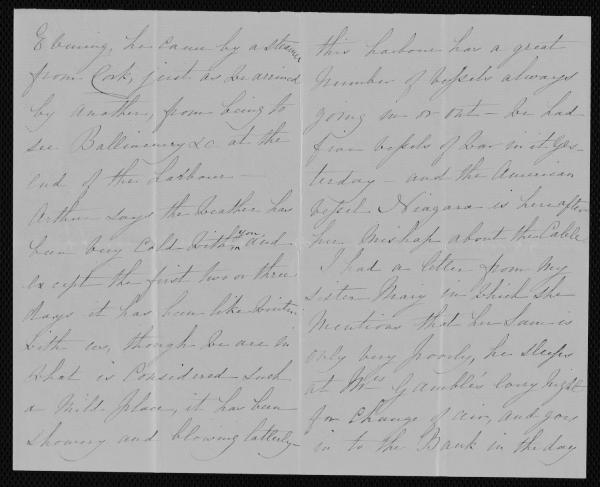 Evening, he came by a steamer
from Cork, just as we arrived
by another, from being to
see &c at the
end of the harbour —
Arthur says the weather has
been very cold with you and
except the first two or three
days it has been like winter
with us, though we are in
what is considered such
a mild place, it has been
showery and blowing latterly —
this harbour has a great
number of vessels always
going in or out — we had
five vessels of war in it yes-
terday — and the American
vessel Niagara is here after
her mishap about the Cable
I had a letter from my
sister Mary in which she
mentions that her Sam is
only very poorly, he sleeps
at Mrs Gamble's every night
for change of air, and goes
in to the Bank in the day